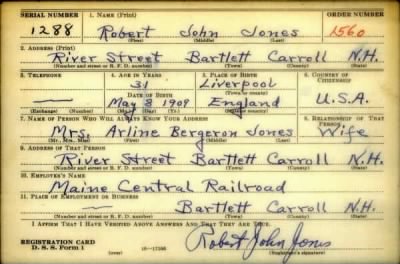 SERIAL NUMBER 1. NAME (Print) ORDER NUMBER
1288 Robert John Jones 1560
(First) (Middle) (Last)
2. ADDRESS (Print)
River Street Bartlett Carroll N.H.
(Number and street or R. F. D. number) (Town) (County) (State)
3. TELEPHONE 4. AGE IN YEARS 5. PLACE OF BIRTH 6. COUNTRY OF CITIZENSHIP
31 Liverpool
DATE OF BIRTH (Town or county)
— May 8 1909 England U.S.A.
(Exchange) (Number) (Mo.) (Day) (Yr.) (State or country)
7. NAME OF PERSON WHO WILL ALWAYS KNOW YOUR ADDRESS 8. RELATIONSHIP OF THAT PERSON
Mrs. Arline Bergeron Jones Wife
(Mr., Mrs., Miss) (First) (Middle) (Last)
9. ADDRESS OF THAT PERSON
River Street Bartlett Carroll N.H.
(Number and street or R. F. D. number) (Town) (County) (State)
10. EMPLOYER'S NAME
Maine Central Railroad
11. PLACE OF EMPLOYMENT OR BUSINESS
— Bartlett Carroll N.H.
(Number and street or R. F. D. number) (Town) (County) (State)
I AFFIRM THAT I HAVE VERIFIED ABOVE ANSWERS AND THAT THEY ARE TRUE.
REGISTRATION CARD Robert John Jones
D. S. S. Form 1 (Registrant's signature)